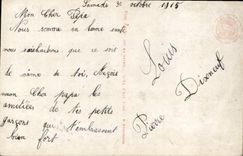 Samedi 30 octobre 1915
Mon Cher Papa
Nous somme en bonne santé
nous souhaitons que ce soit
le même de toi, Reçois
mon Cher papa les
amitiées de tes petits
garçons qui t'embrassent
bien fort
Louis
Dixneuf
Pierre